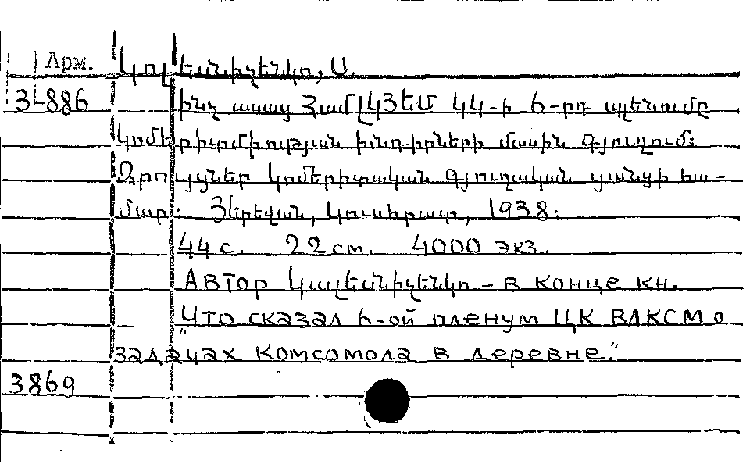 Арм. Կոլեսնիչենկո, Ա.
3-886 Ինչ ասաց ՀամԼԿՅԵՄ ԿԿ-ի 6-րդ պլենումը
կոմերիտմիության խնդիրների մասին գյուղում:
Զրույցներ կոմերիտական գյուղական ցանցի հա-
մար: Յերեվան, Կուսհրատ, 1938:
44 с. 22 см. 4000 экз.
Автор Կալեսնիչենկո - в конце кн.
"Что сказал 6-ой пленум ЦК ВЛКСМ о
задачах комсомола в деревне."
3869